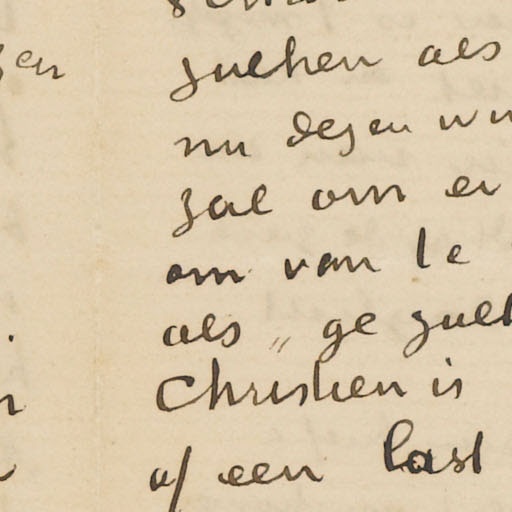 zullen als
nu dezen
zal om er
om van te
als „ ge zult
Christien is
of een last